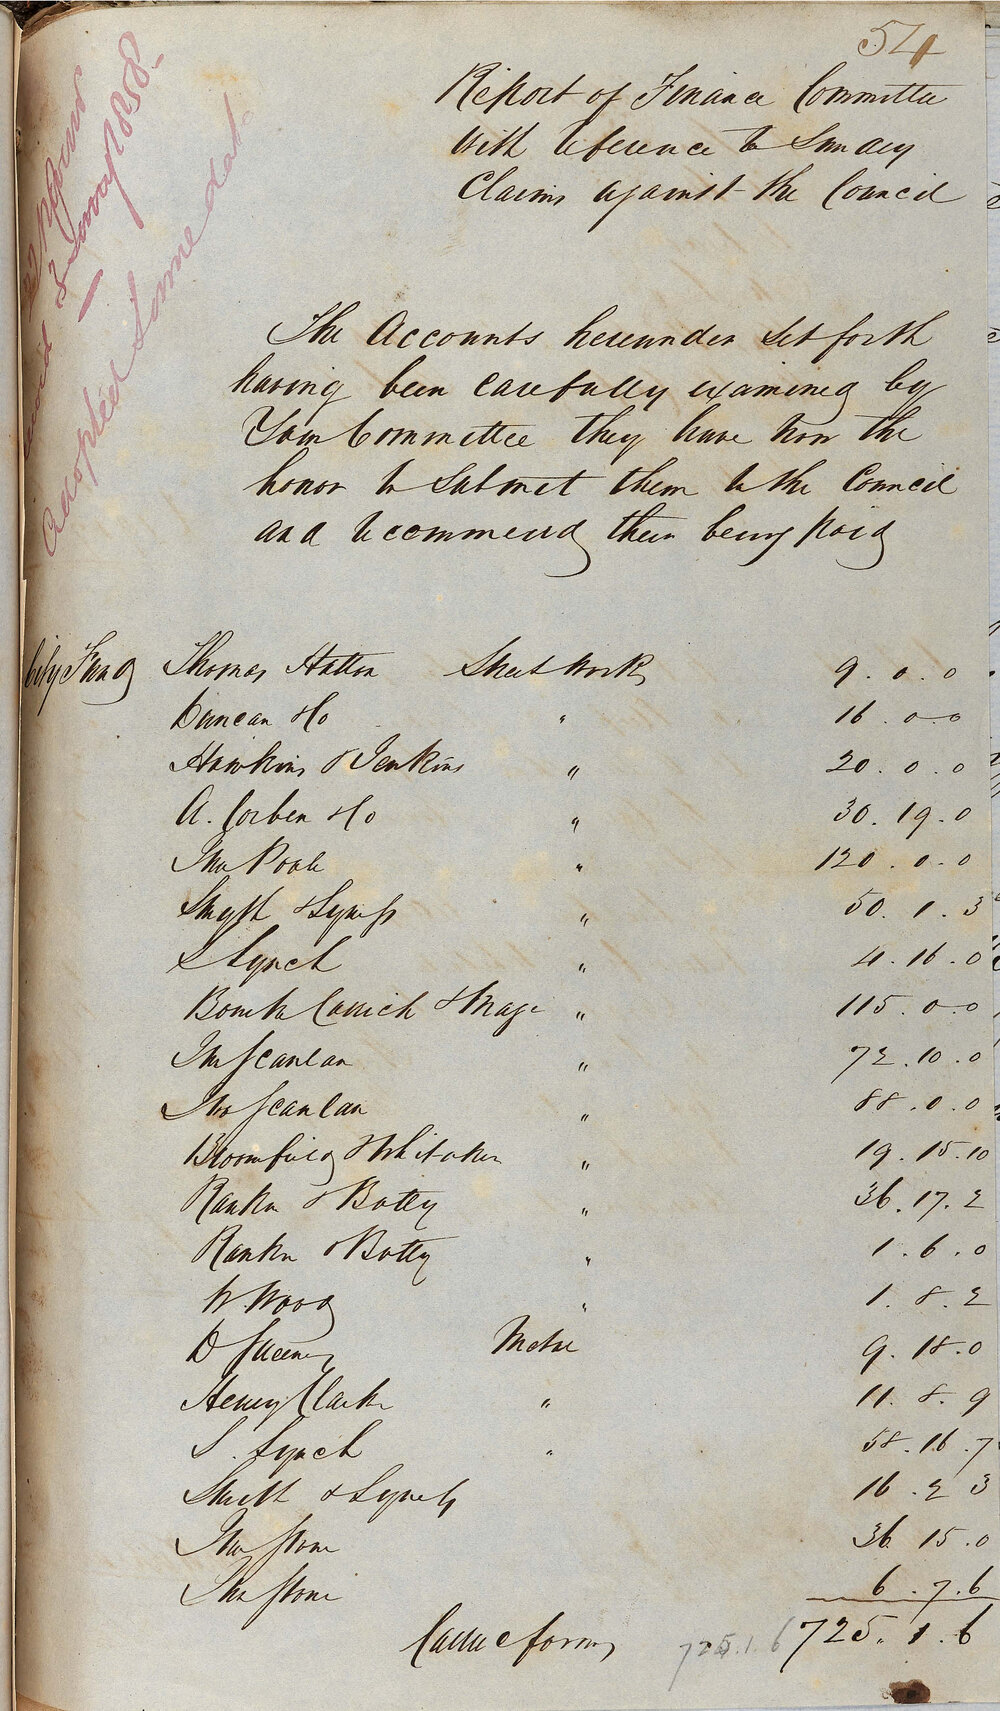 54
Report of Finance Committee
with reference to Sundry
Claims against the Council
1858
Adopted Same date
The Accounts hereunder set forth
having been carefully examined by
Your Committee they have now the
honor to submit them to the Council
and recommend their being paid
City Fund Thomas Hatton Street Work 9. 0. 0
Duncan & Co " 16. 0. 0
Hawkins & Jenkins " 20. 0. 0
A. Corben & Co " 30. 19. 0
Jno Poole " 120. 0. 0
Smyth & Lynch " 50. 1. 3
S Lynch " 4. 16. 0
Carrick & " 115. 0. 0
Jno Scanlan " 72. 10. 0
Jno Scanlan " 88. 0. 0
Bloomfield & Whitaker " 19. 15. 10
Rankin & Botty " 36. 17. 2
Rankin & Botty " 1. 6. 0
W Wood " 1. 8. 2
D Sweeney Metal 9. 18. 0
Henry Clarke " 11. 8. 9
S. Lynch " 58. 16. 7
Smith & Lynch 16. 2 3
Jno Stone 36. 15. 0
Jno Stone 6. 7. 6
Carried forward 725. 1. 6 725. 1. 6